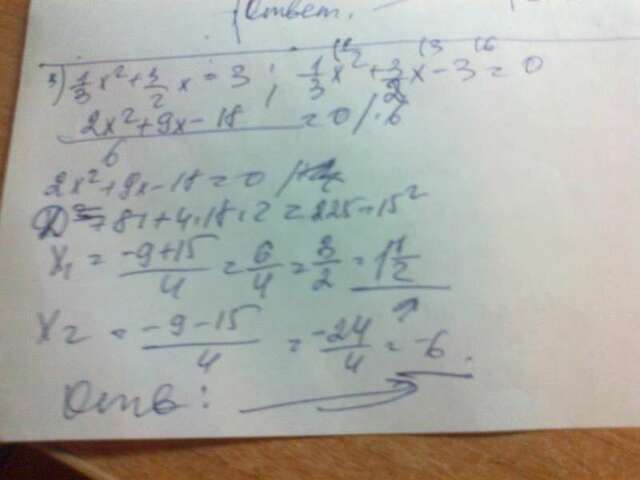 Ответ.
3) 1/3 x² + 3/2 x = 3 ; 1/3 x² + 3/2 x - 3 = 0
(2 (3 (6
2x² + 9x - 18 / 6 = 0 / · 6
2x² + 9x - 18 = 0
D = 81 + 4 · 18 · 2 = 225 = 15²
x₁ = -9+15 / 4 = 6/4 = 3/2 = 1 1/2
x₂ = -9-15 / 4 = -24/4 = -6.
Отв: